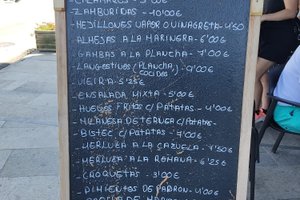 ZAMBURIÑAS - 10'00€
MEJILLONES VAPOR O VINAGRETA - 4'50
ALMEJAS A LA MARINERA - 6'00€
GAMBAS A LA PLANCHA - 7'00€
LANGOSTINOS (PLANCHA, COCIDOS - 9'00€
VIEIRA - 5'25€
ENSALADA MIXTA - 5'00€
HUEVOS FRITOS C/PATATAS - 4'00€
MILANESA DE TERNERA C/PATATAS -
BISTEC C/PATATAS - 7'00€
MERLUZA A LA CAZUELA - 7'50€
MERLUZA A LA ROMANA - 6'25€
CROQUETAS - 5'00€
- PIMIENTOS DE PADRON - 4'00€